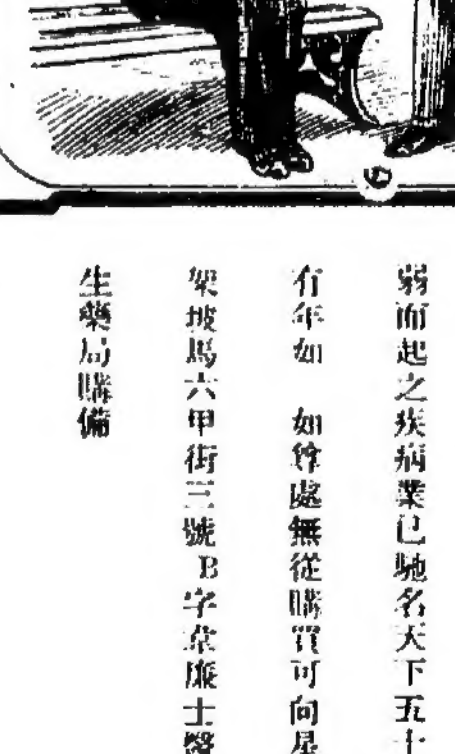 弱而起之疾病業已馳名天下五十
有年如　如尊處無從購買可向星
架坡馬六甲街三號B字韋廉士醫
生藥局購備